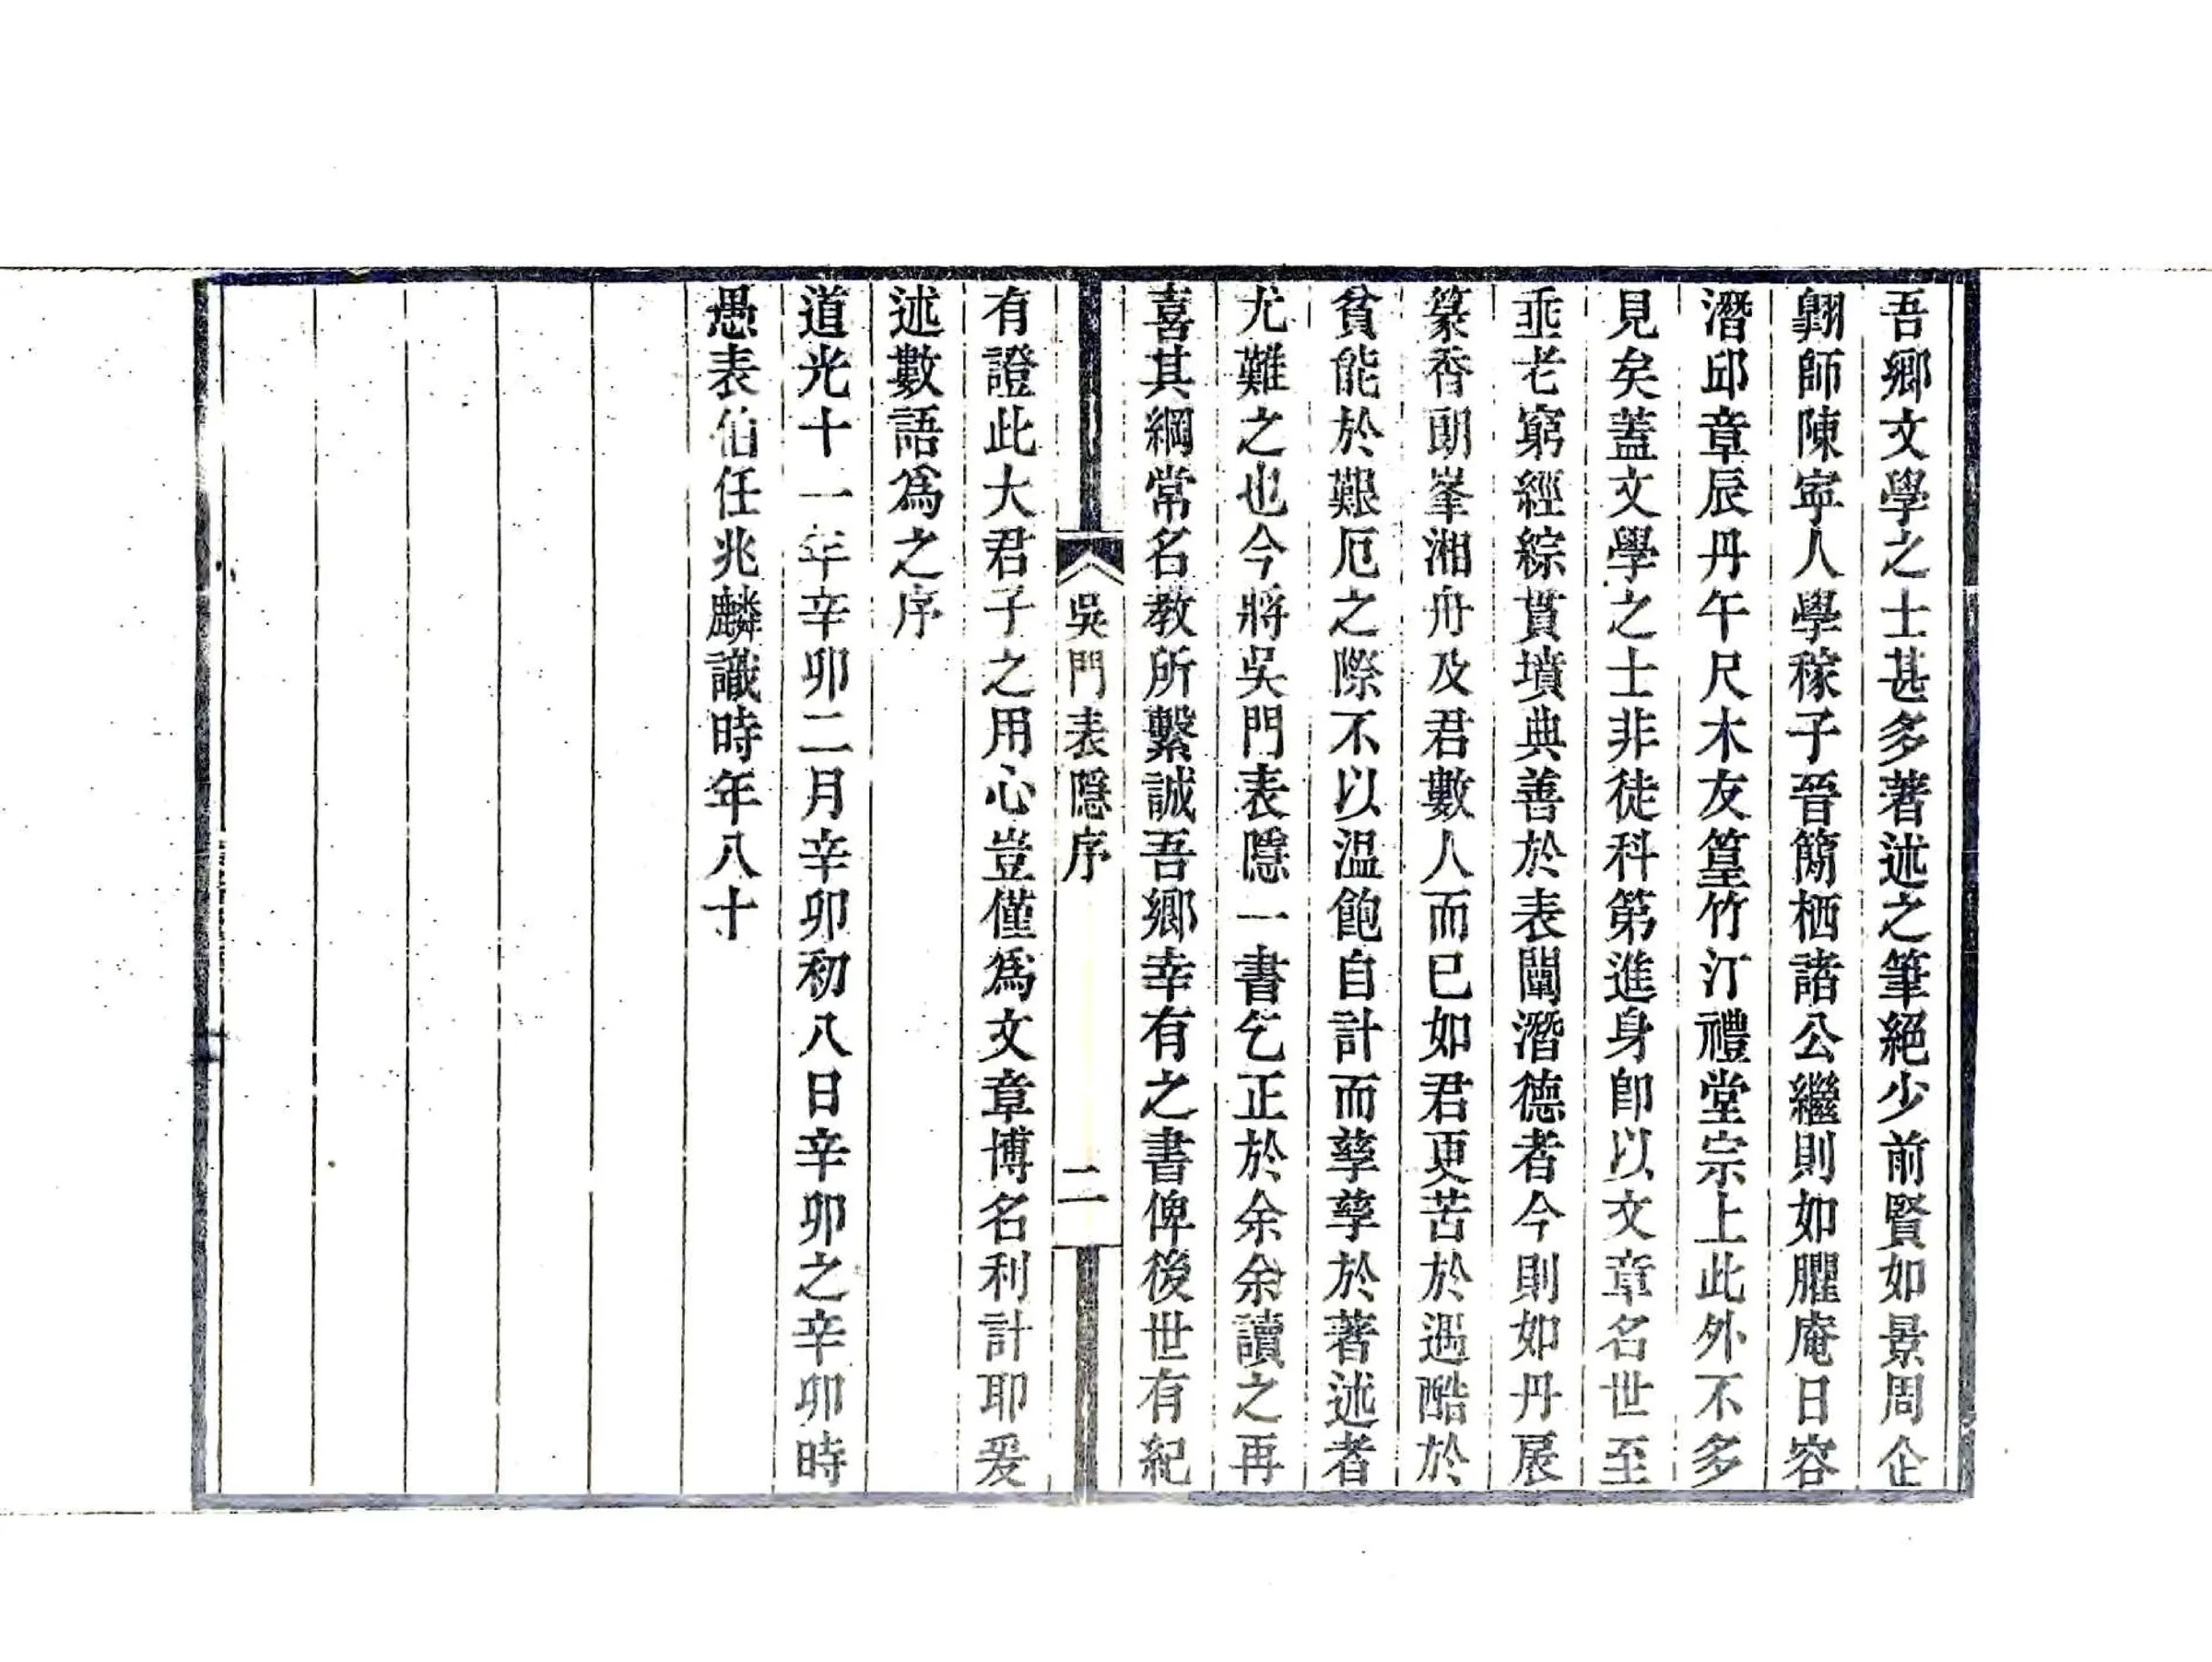 吾鄉文學之士甚多著述之筆絕少前賢如景周企
翺師陳寜人學稼子晉簡栖諸公繼則如臞庵日容
潛邱章辰丹午尺木友篁竹汀禮堂宗上此外不多
見矣蓋文學之士非徒科第進身卽以文章名世至
垂老窮經綜貫墳典善於表闡潛德者今則如丹扆
篆香朗峯湘舟及君數人而已如君更苦於遇酷於
貧能於艱厄之際不以溫飽自計而孳孳於著述者
尤難之也今將吳門表隱一書乞正於余余讀之再
喜其綱常名教所繫誠吾鄉幸有之書俾後世有紀
吳門表隱序
二
有證此大君子之用心豈僅爲文章博名利計耶爰
述數語爲之序
道光十一年辛卯二月辛卯初八日辛卯之辛卯時
愚表伯任兆麟識時年八十